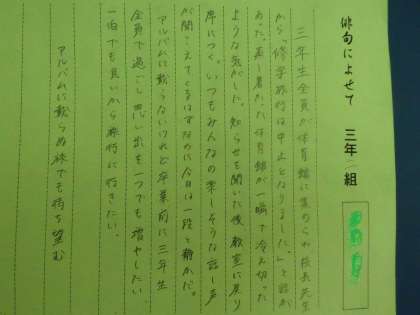 俳句によせて 三年 組
三年生全員が体育館に集められ校長先生
から「修学旅行は中止となりました。」と話が
あった。蒸し暑かった体育館が一瞬で冷え切った
ような気がした。知らせを聞いた後教室に戻り
席につく。いつもみんなの楽しそうな話し声
が聞こえてくるはずなのに今日は一段と静かだ。
アルバムに載らないけれど卒業前に三年生
全員で過ごし思い出を一つでも増やしたい
一泊でも良いから旅行に行きたい。
アルバムに載らぬ旅でも待ち望む